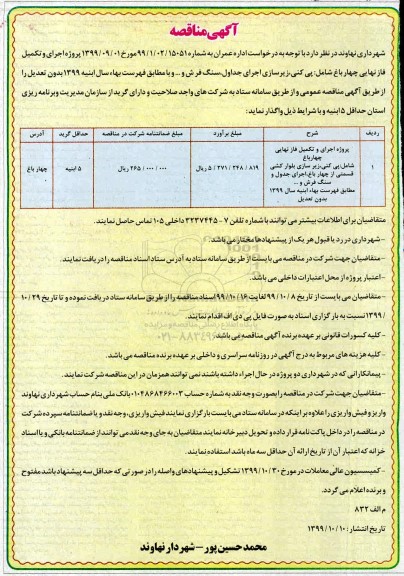 آگهی مناقصه
شهرداری نهاوند در نظر دارد با توجه به درخواست اداره عمران به شماره ۹۹/۱/۰۲/۱۵۰۵۱ مورخ ۱۳۹۹/۰۹/۰۱ پروژه اجرای و تکمیل
فاز نهایی چهار باغ شامل: پی کنی،زیرسازی اجرای جداول،سنگ فرش و ... و با مطابق فهرست بهاء سال ابنیه ۱۳۹۹ بدون تعدیل را
از طریق آگهی مناقصه عمومی و از طریق سامانه ستاد به شرکت های واجد صلاحیت و دارای گرید از سازمان مدیریت و برنامه ریزی
استان حداقل ۵ ابنیه و با شرایط ذیل واگذار نماید:
ردیف شرح مبلغ برآورد مبلغ ضمانتنامه شرکت در مناقصه حداقل گرید آدرس
۱ پروژه اجرای و تکمیل فاز نهایی چهارباغ ۵/۲۷۱/۲۴۸/۸۱۹ ریال ۲۶۵/۰۰۰/۰۰۰ ریال ۵ ابنیه چهار باغ
شامل:پی کنی،زیر سازی بلوار کشی
قسمتی از چهار باغ،اجرای جدول و
سنگ فرش و ...
مطابق فهرست بهاء ابنیه سال ۱۳۹۹
بدون تعدیل
متقاضیان برای اطلاعات بیشتر می توانند با شماره تلفن ۷-۳۲۲۳۷۴۴۵ داخلی ۱۰۵ تماس حاصل نمایند.
-شهرداری در رد یا قبول هر یک از پیشنهادها مختار می باشد.
-متقاضیان جهت شرکت در مناقصه می بایست از طریق سامانه ستاد به آدرس ستاد اسناد مناقصه را دریافت نمایند.
-اعتبار پروژه از محل اعتبارات داخلی می باشد.
-متقاضیان می بایست از تاریخ ۹۹/۱۰/۸ لغایت ۹۹/۱۰/۱۶ اسناد مناقصه را از طریق سامانه ستاد دریافت نموده و تا تاریخ ۱۰/۲۹/
۱۳۹۹ نسبت به بارگزاری اسناد به صورت فایل پی دی اف اقدام نمایند.
-کلیه کسورات قانونی بر عهده برنده آگهی مناقصه می باشد.
-کلیه هزینه های مربوط به درج آگهی در روزنامه سراسری و داخلی بر عهده برنده مناقصه می باشد.
-پیمانکارانی که در شهرداری دو پروژه در حال اجراء داشته باشند نمی توانند همزمان در این مناقصه شرکت نمایند.
-متقاضیان جهت شرکت در مناقصه را بصورت وجه نقد به شماره حساب بانک ملی بنام حساب شهرداری نهاوند
واریز و فیش واریزی را علاوه بر اینکه در سامانه ستاد می بایست بارگزاری نمایند فیش واریزی، وجه نقد و یا ضمانتنامه سپرده شرکت
در مناقصه را در داخل پاکت نامه قرار داده و تحویل دبیرخانه نمایند متقاضیان به جای وجه نقد می توانند از ضمانتنامه بانکی و یا اسناد
خزانه که اعتبار آن از تاریخ ارائه آن حداقل سه ماه باشد استفاده نمایند.
-کمیسیون عالی معاملات در مورخ ۱۳۹۹/۱۰/۳۰ تشکیل و پیشنهادهای واصله را در صورتی که حداقل سه پیشنهاد باشد مفتوح
و برنده اعلام می گردد.
م الف ۸۳۲
تاریخ انتشار: ۱۳۹۹/۱۰/۱۰
محمد حسین پور - شهردار نهاوند